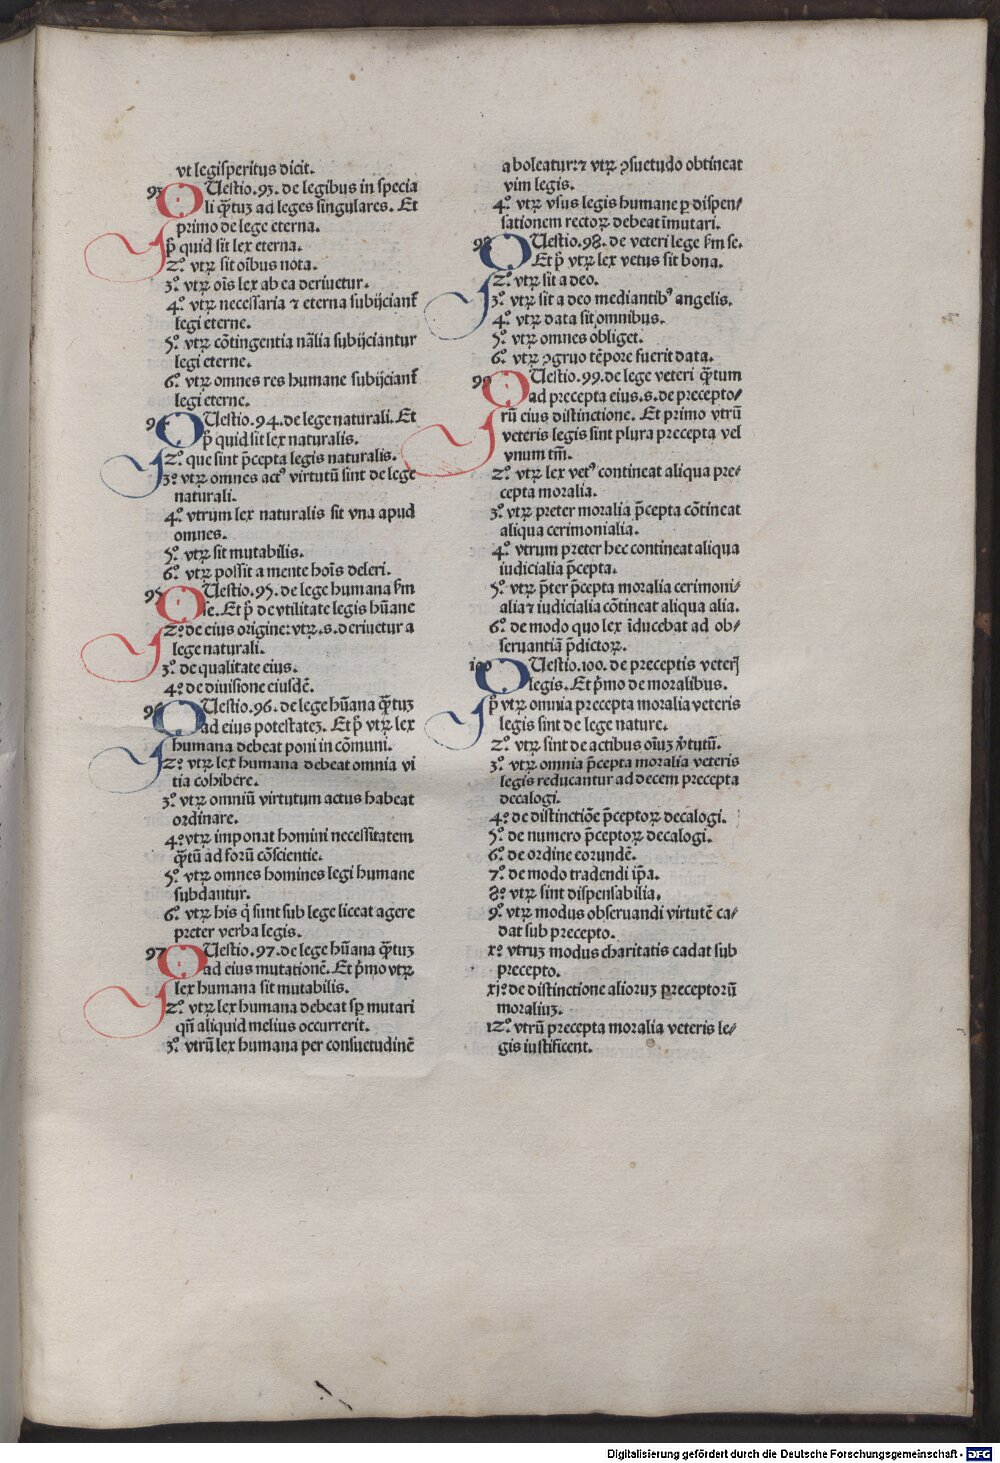 vt legisperitus dicit.
93 QUestio.93. de legibus in specia
li q̃tuꝫ ad leges singulares. Et
primo de lege eterna.
p̃ quid sit lex eterna.
2º vtrꝫ sit oĩbus nota.
3º vtrꝫ oĩs lex ab ea deriuetur.
4º vtrꝫ necessaria ⁊ eterna subijciant᷑
legi eterne.
5º vtrꝫ cõtingentia nãlia subijciantur
legi eterne.
6º vtrꝫ omnes res humane subijciant᷑
legi eterne.
94 QUestio.94. de lege naturali. Et
p̃ quid sit lex naturalis.
2º que sint p̃cepta legis naturalis.
3º vtrꝫ omnes actꝰ virtutũ sint de lege
naturali.
4º vtrum lex naturalis sit vna apud
omnes.
5º vtrꝫ sit mutabilis.
6º vtrꝫ possit a mente hoĩs deleri.
95 QUestio.95. de lege humana ẜm
se. Et p̃ de vtilitate legis hũane
2º de eius origine: vtrꝫ.s. deriuetur a
lege naturali.
3º de qualitate eius.
4º de diuisione eiusdẽ.
96 QUestio.96. de lege hũana q̃tuꝫ
ad eius potestateꝫ. Et p̃ vtrꝫ lex
humana debeat poni in cõmuni.
2º vtrꝫ lex humana debeat omnia vi
tia cohibere.
3º vtrꝫ omniũ virtutum actus habeat
ordinare.
4º vtrꝫ imponat homini necessitatem
q̃tũ ad forũ cõscientie.
5º vtrꝫ omnes homines legi humane
subdantur.
6º vtrꝫ his q̇ sunt sub lege liceat agere
preter verba legis.
97 QUestio.97. de lege hũana q̃tuꝫ
ad eius mutationẽ. Et p̃mo vtrꝫ
lex humana sit mutabilis.
2º vtrꝫ lex humana debeat sp̱ mutari
qñ aliquid melius occurrerit.
3º vtrũ lex humana per consuetudinẽ
aboleatur: ⁊ vtrꝫ ꝯsuetudo obtineat
vim legis.
4º vtrꝫ vsus legis humane ꝑ dispen⸗
sationem rectoꝝ debeat ĩmutari.
98 QUestio.98. de veteri lege ẜm se.
Et p̃ vtrꝫ lex vetus sit bona.
2º vtrꝫ sit a deo.
3º vtrꝫ sit a deo mediantibꝰ angelis.
4º vtrꝫ data sit omnibus.
5º vtrꝫ omnes obliget.
6º vtrꝫ ꝯgruo tẽpore fuerit data.
99 QUestio.99. de lege veteri q̃tum
ad precepta eius.s. de precepto⸗
rũ eius distinctione. Et primo vtrũ
veteris legis sint plura precepta vel
vnum tm̃.
2º vtrꝫ lex vetꝰ contineat aliqua pre⸗
cepta moralia.
3º vtrꝫ preter moralia p̃cepta cõtineat
aliqua cerimonialia.
4º vtrum preter hec contineat aliqua
iudicialia p̃cepta.
5º vtrꝫ p̃ter p̃cepta moralia cerimoni⸗
alia ⁊ iudicialia cõtineat aliqua alia.
6º de modo quo lex ĩducebat ad ob⸗
seruantiã p̃dictoꝝ.
100 QUestio.100. de preceptis veterꝭ
legis. Et p̃mo de moralibus.
p̃ vtrꝫ omnia precepta moralia veteris
legis sint de lege nature.
2º vtrꝫ sint de actibus oĩuꝫ v̾tutũ.
3º vtrꝫ omnia p̃cepta moralia veteris
legis reducantur ad decem precepta
decalogi.
4º de distinctiõe p̃ceptoꝝ decalogi.
5º de numero p̃ceptoꝝ decalogi.
6º de ordine eorundẽ.
7º de modo tradendi ip̃a.
8º vtrꝫ sint dispensabilia.
9º vtrꝫ modus obseruandi virtutẽ ca⸗
dat sub precepto.
xº vtruꝫ modus charitatis cadat sub
precepto.
xjº de distinctione alioruꝫ preceptorũ
moraliuꝫ.
12º vtrũ precepta moralia veteris le⸗
gis iustificent.
Digitalisierung gefördert durch die Deutsche Forschungsgemeinschaft - DFG